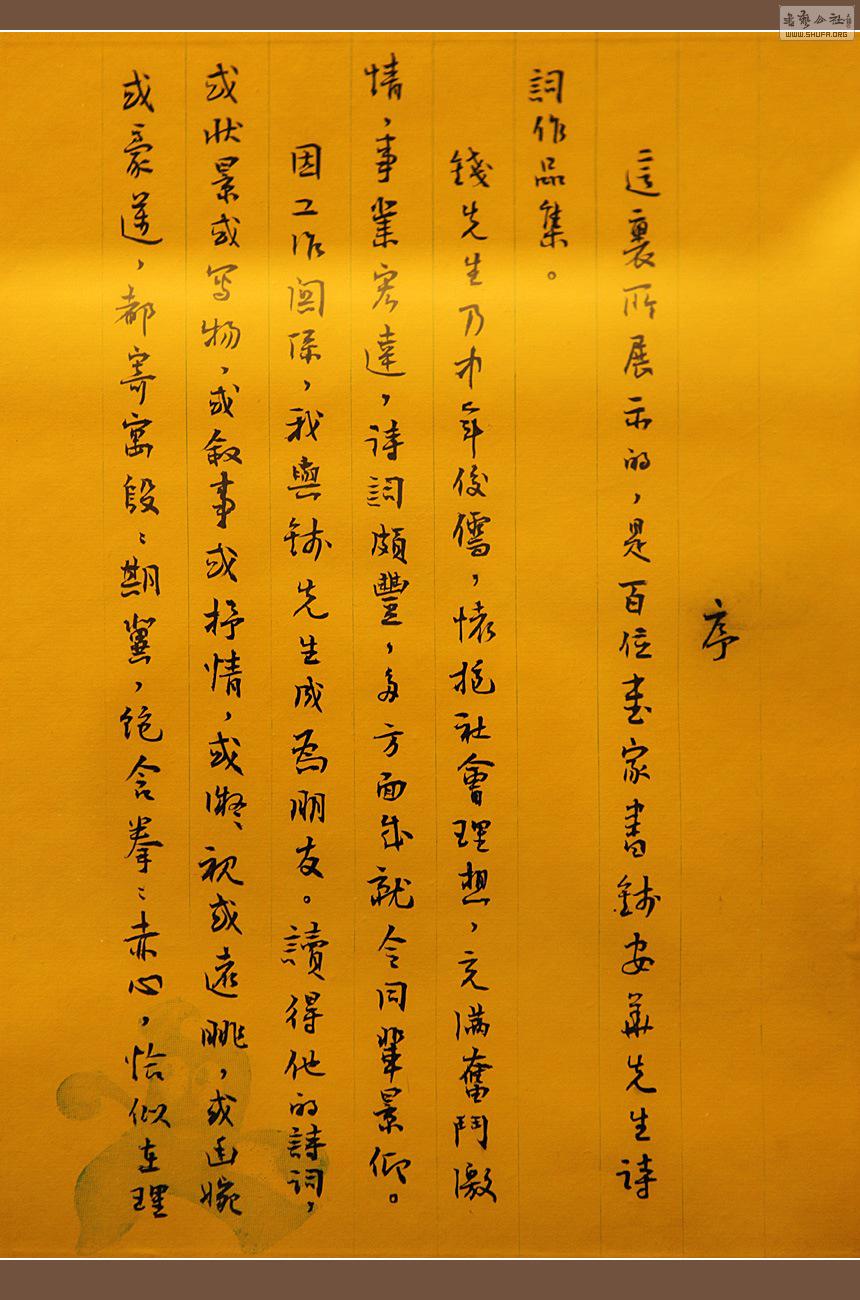 序
這裏所展示的，是百位書家書錢安華先生詩
詞作品集。
錢先生乃中年俊儒，懷抱社會理想，充滿奮鬥激
情，事業宏達，詩詞頗豐，多方面成就令同輩景仰。
因工作関係，我與錢先生成爲朋友。讀得他的詩詞，
或狀景或写物，或敘事或抒情，或凝視或遠眺，或幽婉
或豪邁，都寄寓殷〻期冀，飽含拳〻赤心，恰似在理
書藝公社
WWW.SHUFA.ORG